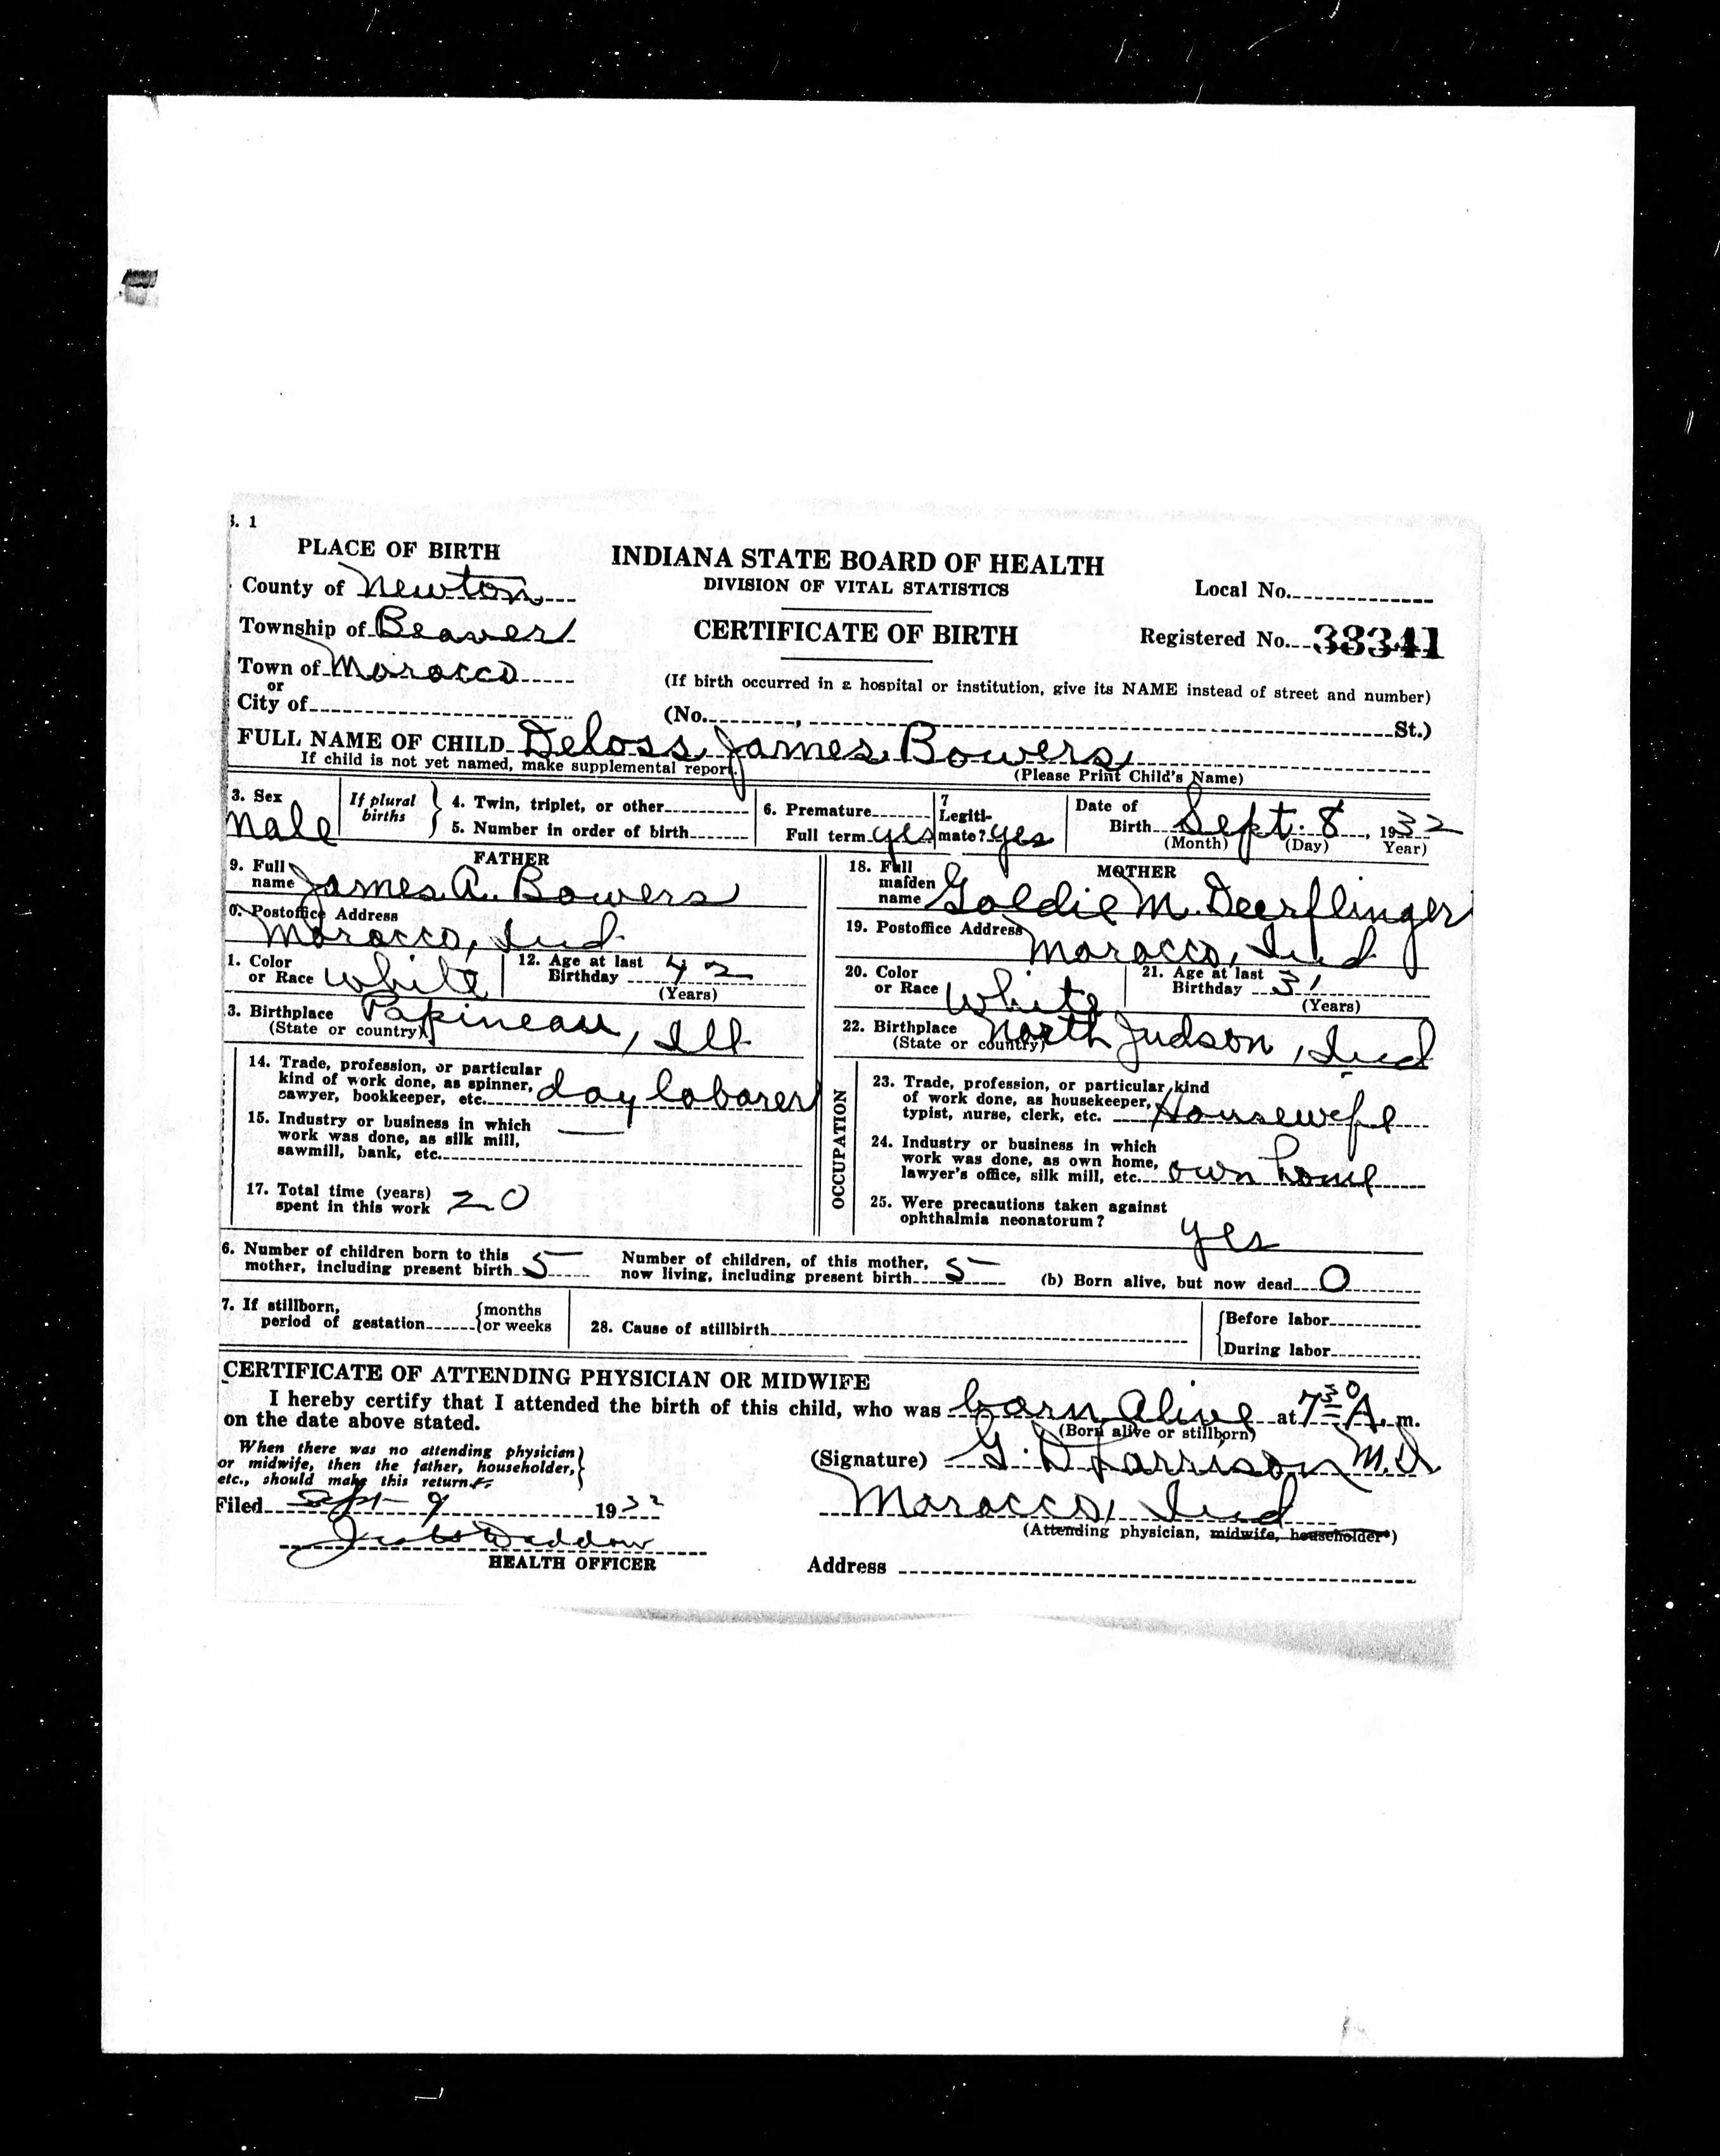 S. 1
PLACE OF BIRTH
INDIANA STATE BOARD OF HEALTH
County of Newton
DIVISION OF VITAL STATISTICS
Local No.
Township of Beaver
CERTIFICATE OF BIRTH
Registered No. 38341
Town of Morocco
or
(If birth occurred in a hospital or institution, give its NAME instead of street and number)
City of
(No. , St.)
FULL NAME OF CHILD Deloss James Bowers
If child is not yet named, make supplemental report.
(Please Print Child's Name)
3. Sex Male
If plural births
4. Twin, triplet, or other
5. Number in order of birth
6. Premature
Full term yes
7 Legiti-
mate? yes
Date of
Birth Sept. 8, 1932
(Month) (Day) Year)
FATHER
9. Full
name James A. Bowers
0. Postoffice Address
Morocco, Ind
1. Color
or Race White
12. Age at last
Birthday 42
(Years)
3. Birthplace Papineau, Ill
(State or country)
14. Trade, profession, or particular
kind of work done, as spinner,
sawyer, bookkeeper, etc. day laborer
15. Industry or business in which
work was done, as silk mill,
sawmill, bank, etc.
17. Total time (years)
spent in this work 20
MOTHER
18. Full
maiden
name Goldie M. Deerflinger
19. Postoffice Address
Morocco, Ind
20. Color
or Race White
21. Age at last
Birthday 31
(Years)
22. Birthplace North Judson, Ind
(State or country)
OCCUPATION
23. Trade, profession, or particular kind
of work done, as housekeeper,
typist, nurse, clerk, etc. Housewife
24. Industry or business in which
work was done, as own home,
lawyer's office, silk mill, etc. own home
25. Were precautions taken against
ophthalmia neonatorum? yes
6. Number of children born to this
mother, including present birth 5
Number of children, of this mother,
now living, including present birth 5
(b) Born alive, but now dead 0
7. If stillborn,
period of gestation
months
or weeks
28. Cause of stillbirth
Before labor
During labor
CERTIFICATE OF ATTENDING PHYSICIAN OR MIDWIFE
I hereby certify that I attended the birth of this child, who was born Alive at 7 30 A. m.
on the date above stated.
(Born alive or stillborn)
When there was no attending physician
or midwife, then the father, householder,
etc., should make this return.
(Signature) G. D Larrison M.D.
Filed Sept 9 1932
Morocco, Ind
(Attending physician, midwife, householder*)
Weddow
HEALTH OFFICER
Address